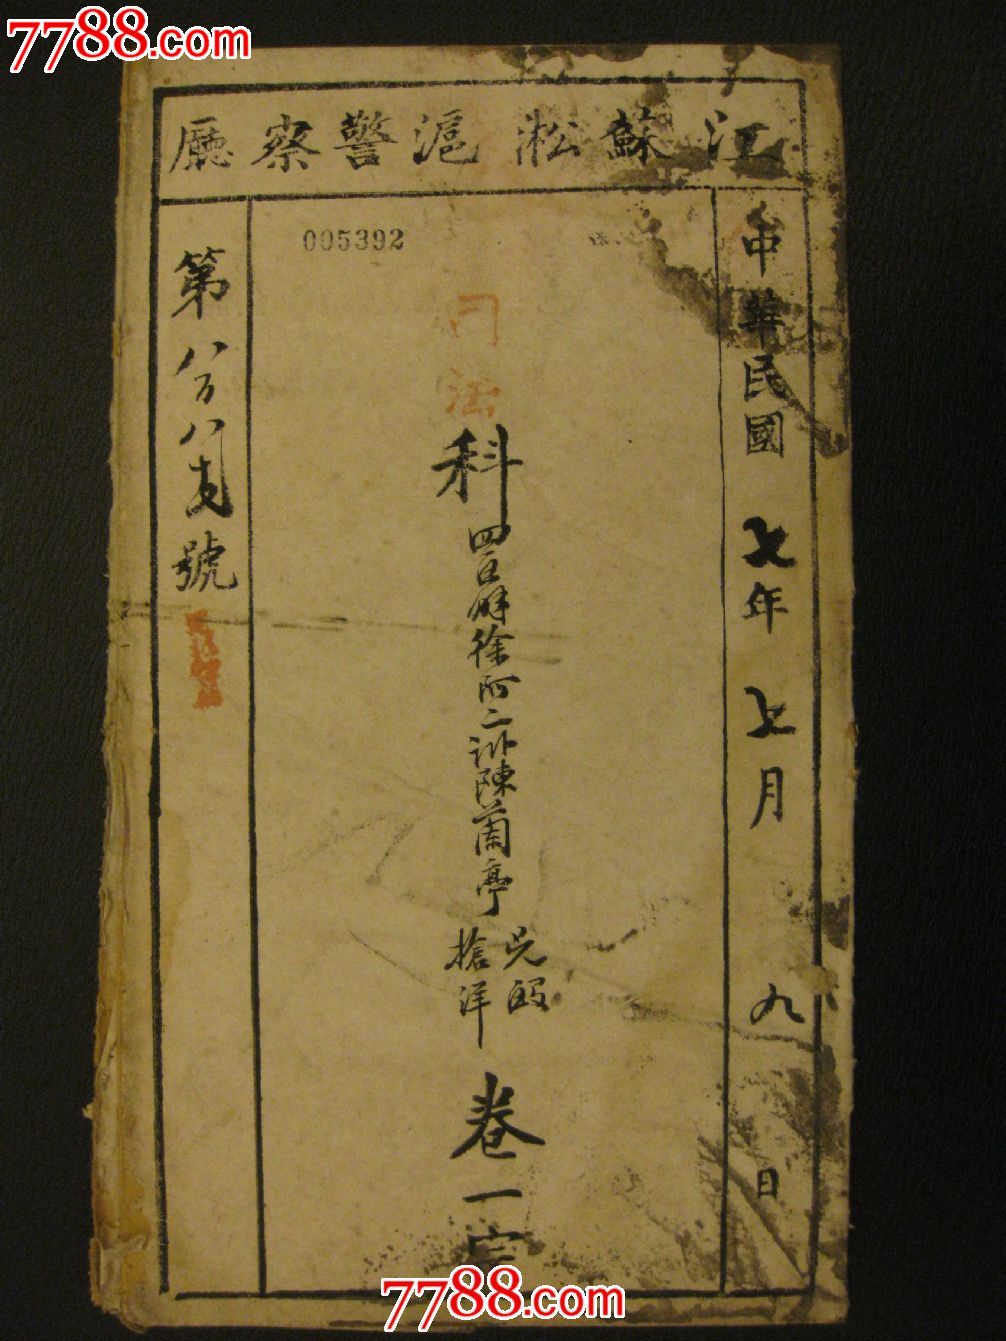 7788.com
江蘇淞滬警察廳
中華民國七年七月九日
005392
司法
科
四區解徐阿二訴陳蘭亭
兇毆
搶洋
卷一宗
第八百八號
7788.com